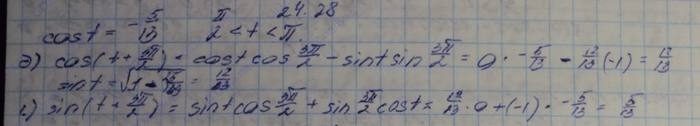 24.28
cos t = -5/13   π/2 < t < π.
a) cos(t + 3π/2) = cos t cos 3π/2 - sin t sin 3π/2 = 0 · -5/13 - 12/13 (-1) = 12/13
sin t = √1 - 25/169 = 12/13
1.) sin(t + 3π/2) = sin t cos 3π/2 + sin 3π/2 cos t = 12/13 · 0 + (-1) · -5/13 = 5/13